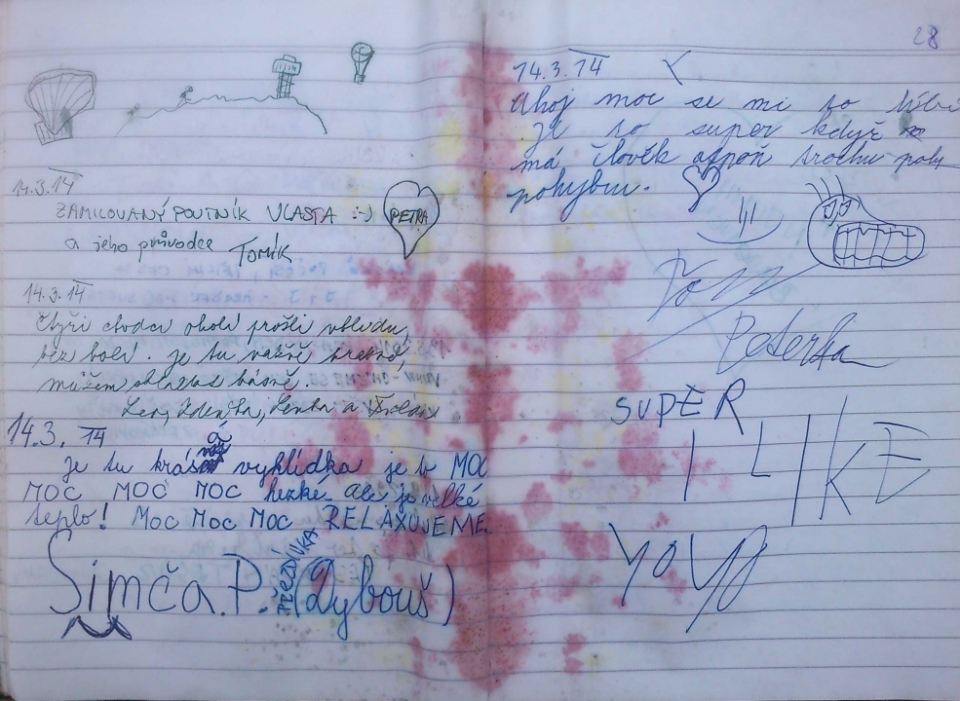 14.3.14
ZAMILOVANÝ POUTNÍK VLASTA :-) PETRA
a jeho průvodce Tomík
14.3.14
Čtyři chodci okolí prošli
bez bolí. je tu vážně krásně,
můžem skládat básně.
Zdeňka, Lenka a
14.3.14
je tu krásná vyhlídka je to MOC
MOC MOC MOC hezké. Ale je velké
teplo! MOC MOC MOC RELAXUJEME
Simča.P. PŘEZDÍVKA (Dybouš)
28
14.3.14
Ahoj moc se mi to líbí
je to super když
má člověk aspoň trochu pohy
pohybu.
Peterka
SUPER
I LIKE
YOYO